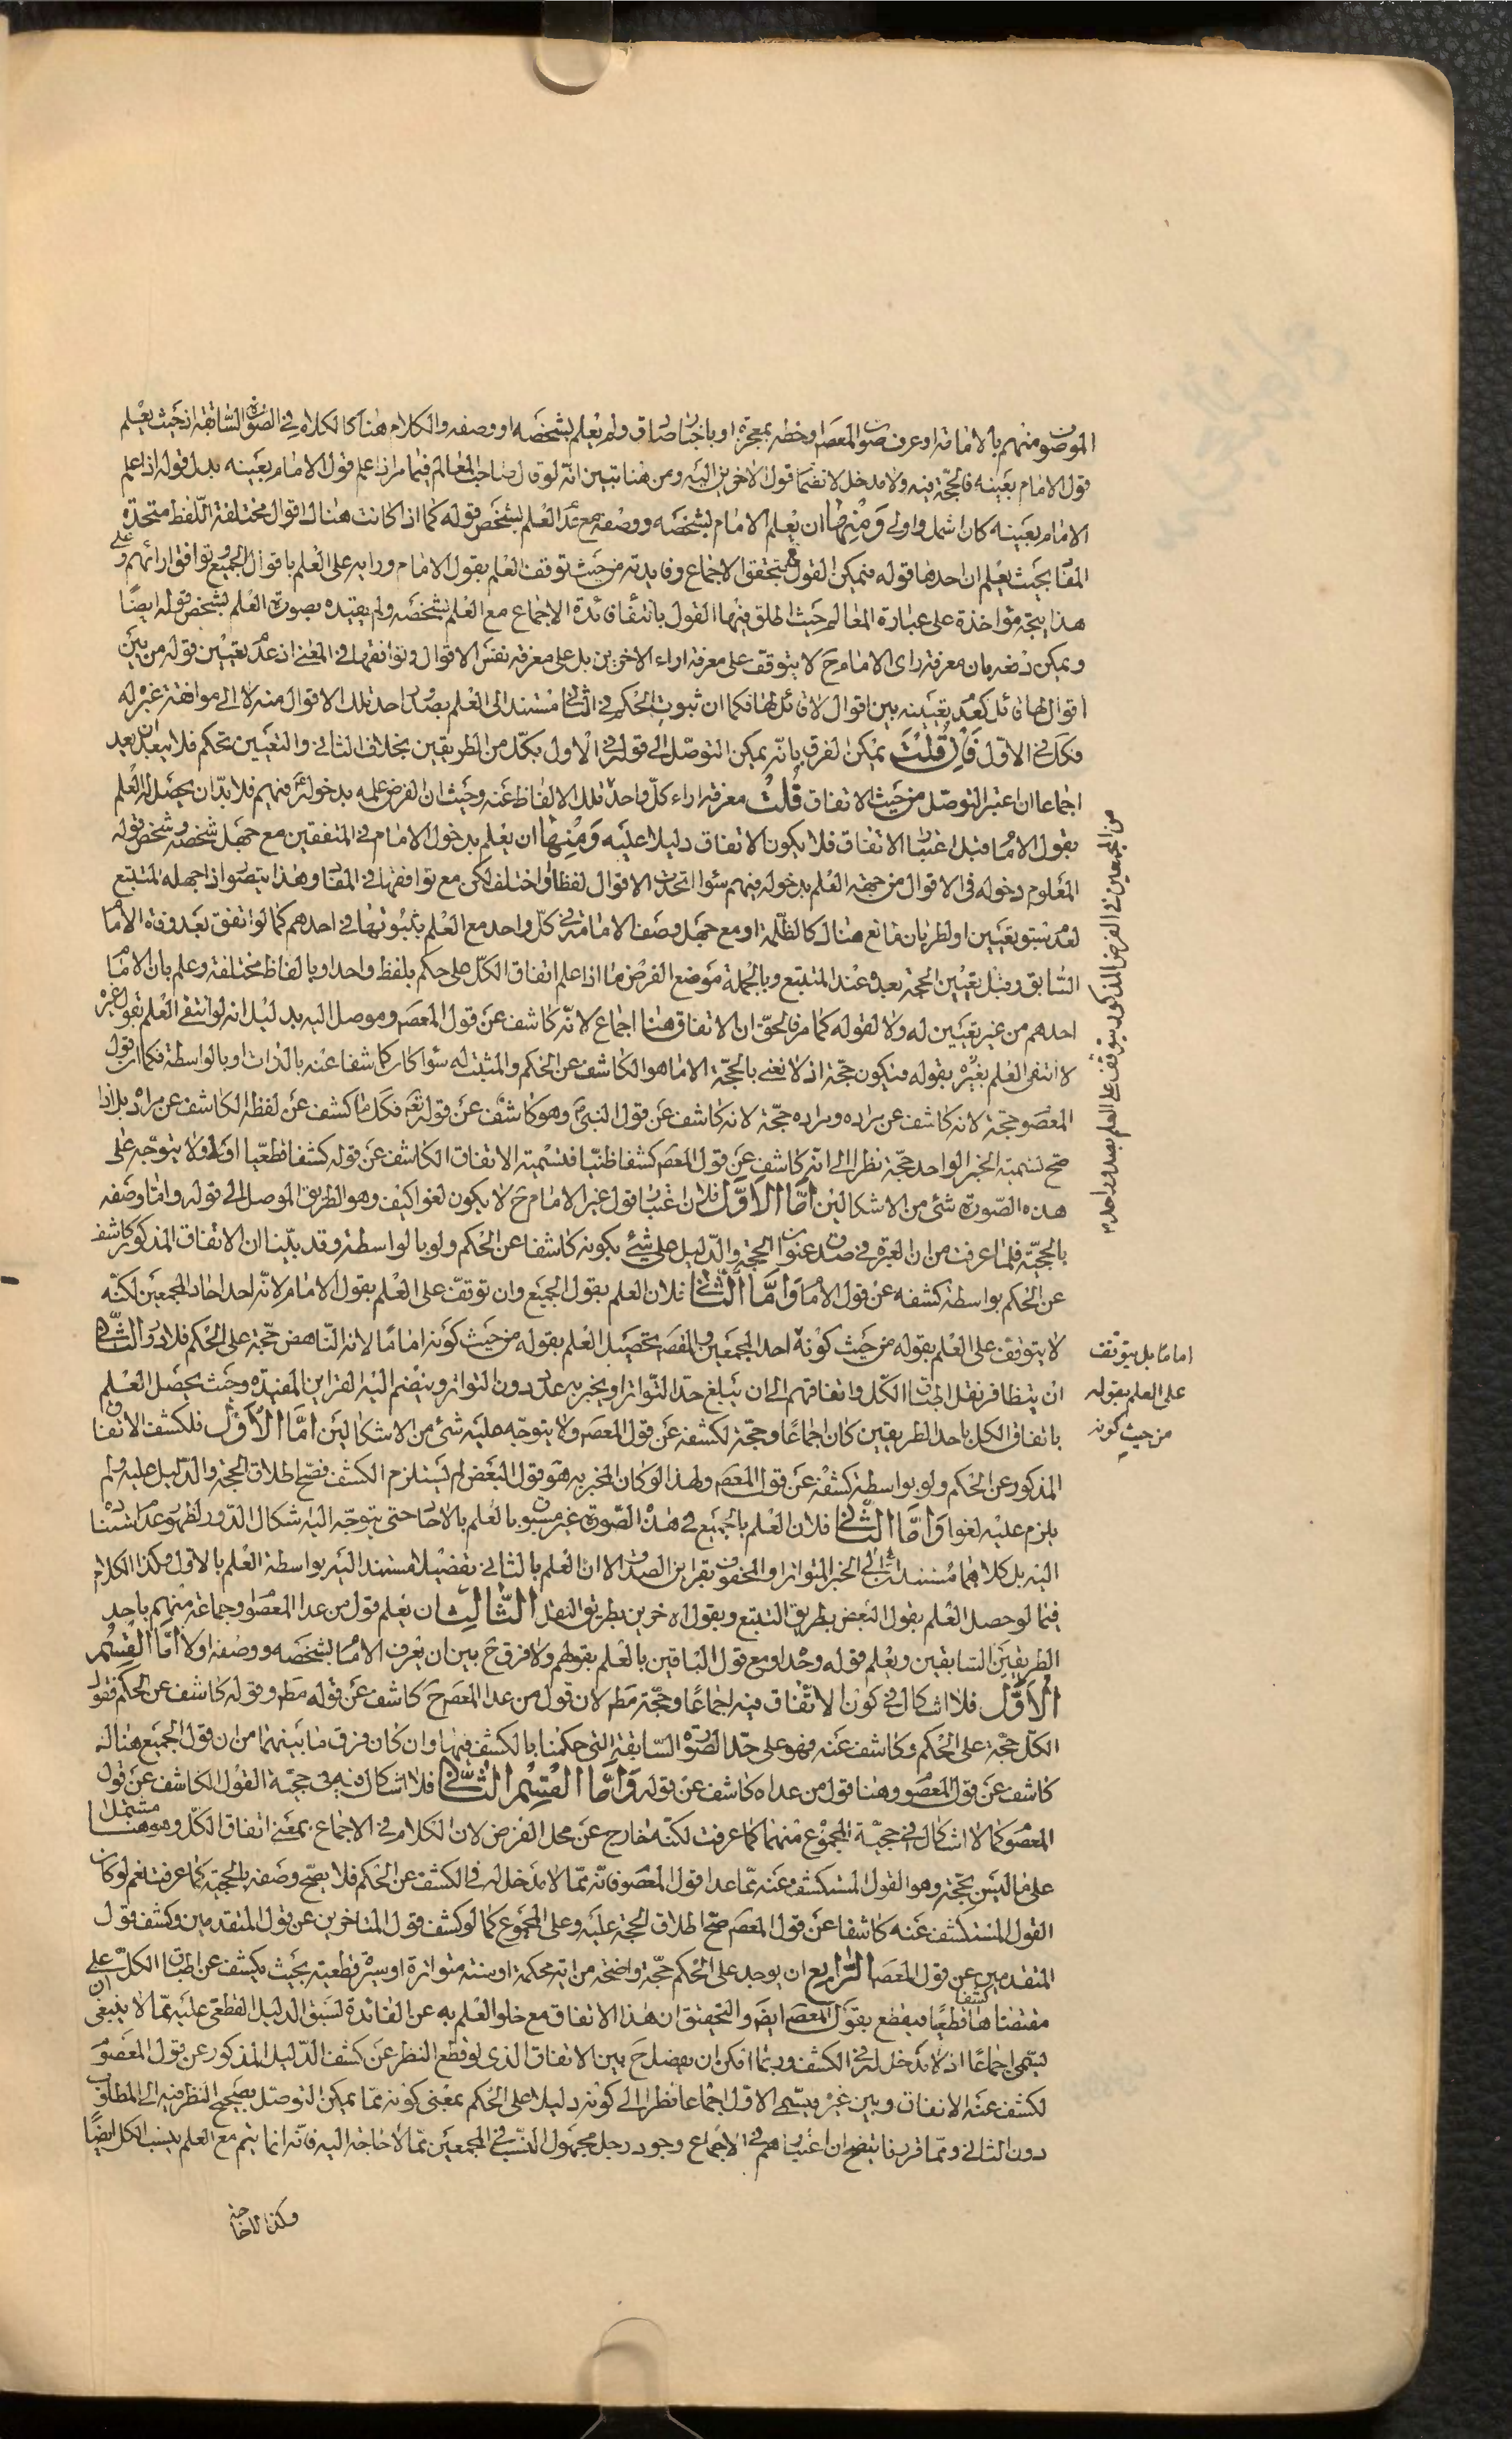 الموصوف منهم بالامامة او عرف صوت المعصوم او خطه بمعجزة او باخبار صادق ولم يعلم بشخصه او وصفه والكلام هنا كالكلام في الصورة السابقة اذ حيث يعلم
قول الامام بعينه فالحجة فيه ولا مدخل لانضمام قول الاخرين اليه ومن هنا تبين انه لو قال صاحب المعالم فيما مر اذا علم قول الامام بعينه بدل قوله اذا علم
الامام بعينه كان اشمل واولى ومنها ان يعلم الامام بشخصه ووصفه مع عدم العلم بشخص قوله كما اذا كانت هناك اقوال مختلفة اللفظ متحدة
المفاد بحيث يعلم ان احدها قوله فيمكن القول ح بتحقق الاجماع وفايدته من حيث توقف العلم بقول الامام ورايه على العلم باقوال الجميع وتوافق ارائهم وعلى
هذا يتجه مؤاخذة على عبارة المعالم حيث اطلق فيها القول بانتفاء فائدة الاجماع مع العلم بشخصه ولم يقيده بصورة العلم بشخص قوله ايضا
ويمكن دفعه بان معرفة راى الامام ح لا يتوقف على معرفة اراء الاخرين بل على معرفة نفس الاقوال وتوافقها في المعنى اذ عدم تعيين قوله من بين
اقوال لها قائل كعدم تعيينه بين اقوال لا قائل لها فكما ان ثبوت الحكم في الثاني مستند الى العلم بصدور احد تلك الاقوال منه لا الى موافقة غيره له
فكذا في الاول فان قلت يمكن الفرق بانه يمكن التوصل الى قوله في الاول بكل من الطريقين بخلاف الثاني والتعيين تحكم فلا يبعد ان يعد
اجماعا ان اعتبر التوصل من حيث الاتفاق قلت معرفة اراء كل واحد من تلك الالفاظ عنه وحيث ان الفرض علمه بدخوله فيهم فلا بد ان يحصل له العلم
بقول الامام قبل اعتبار الاتفاق فلا يكون الاتفاق دليلا عليه ومنها ان يعلم بدخول الامام في المتفقين مع جهل شخصه وشخص قوله
المعلوم دخوله في الاقوال من جهة العلم بدخوله فيهم سواء اتحدت الاقوال لفظا او اختلف لكن مع توافقها في المفاد وهذا يتصور اذا جهله المتتبع
لعدم سبق تعيين او لطريان مانع هناك كالظلمة او مع جهل وصف الامامة في كل واحد مع العلم بثبوتها في احدهم كما لو اتفق بعد وفاة الامام
السابق وقبل تعيين الحجة بعده عند المتتبع وبالجملة موضع الفرض ما اذا علم اتفاق الكل على حكم بلفظ واحد او بالفاظ مختلفة وعلم بان الامام
احدهم من غير تعيين له ولا لقوله كما مر فالحق ان الاتفاق هنا اجماع لانه كاشف عن قول المعصوم وموصل اليه بدليل انه لو انتفى العلم بقول غيره
لانتفى العلم بقوله فيكون حجة اذ لا نعنى بالحجة الا ما هو الكاشف عن الحكم والمثبت له سواء كان كاشفا عنه بالذات او بالواسطة فكما ان قول
المعصوم حجة لانه كاشف عن مراده ومراده حجة لانه كاشف عن قول النبي وهو كاشف عن قوله تعالى فكذا ما كشف عن لفظه الكاشف عن مراده بل اذا
صح تسمية الخبر الواحد حجة نظرا الى انه كاشف عن قول المعصوم كشفا ظنيا فتسمية الاتفاق الكاشف عن قوله كشفا قطعيا اولى ولا يتوجه على
هذه الصورة شئ من الاشكالين اما الاول فلان اعتبار قول غير الامام ح لا يكون لغوا كيف وهو الطريق الموصل الى قوله واما وصفه
بالحجية فلما عرفت من ان العبرة في صدق عنوان الحجة والدليل على شئ بكونه كاشفا عن الحكم ولو بالواسطة وقد بينا ان الاتفاق المذكور كاشف
عن الحكم بواسطة كشفه عن قول الامام واما الثاني فلان العلم بقول الجميع وان توقف على العلم بقول الامام لانه احد احاد المجمعين لكنه
لا يتوقف على العلم بقوله من حيث كونه احد المجمعين والمقصود تحصيل العلم بقوله من حيث كونه اماما لانه الناهض حجة على الحكم فلا دور الثاني
ان يتظافر نقل اطباق الكل واتفاقهم الى ان يبلغ حد التواتر او يخبر به عدد دون التواتر وينضم اليه القراين المفيدة وحيث يحصل العلم
باتفاق الكل باحد الطريقين كان اجماعا وحجة لكشفه عن قول المعصوم ولا يتوجه عليه شئ من الاشكالين اما الاول فلكشف الاتفاق
المذكور عن الحكم ولو بواسطة كشفه عن قول المعصوم ولهذا لو كان المخبر به هو قول البعض لم يستلزم الكشف فصح اطلاق الحجة والدليل عليه ولم
يلزم عليه لغو واما الثاني فلان العلم بالجميع في هذه الصورة غير مسبوق بالعلم بالاحاد حتى يتوجه اليه اشكال الدور لظهور عدم استناده
اليه بل كلاهما مستندان الى الخبر المتواتر او المحفوف بقراين الصدق الا ان العلم بالثاني تفصيلا مستند اليه بواسطة العلم بالاول وكذا الكلام
فيما لو حصل العلم بقول البعض بطريق التتبع وبقول الاخرين بطريق النقل الثالث ان يعلم قول من عدا المعصوم او جماعة منهم باحد
الطريقين السابقين ويعلم قوله وحده او مع قول الباقين بالعلم بقولهم ولا فرق ح بين ان يعرف الامام بشخصه ووصفه او لا اما القسم
الاول فلا اشكال في كون الاتفاق فيه اجماعا وحجة مط لان قول من عدا المعصوم ح كاشف عن قوله مط وقوله كاشف عن الحكم فقول
الكل حجة على الحكم وكاشف عنه فهو على حد الصورة السابقة التي حكمنا بالكشف فيها وان كان فرق ما بينهما من ان قول الجميع هناك
كاشف عن قول المعصوم وهنا قول من عداه كاشف عن قوله واما القسم الثاني فلا اشكال فيه في حجية القول الكاشف عن قول
المعصوم كما لا اشكال في حجية المجموع منهما كما عرفت لكنه خارج عن محل الفرض لان الكلام في الاجماع بمعنى اتفاق الكل وهو هنا مشتمل
على ما ليس بحجة وهو القول المستكشف عنه مما عدا قول المعصوم فانه مما لا مدخل له في الكشف عن الحكم فلا يصح وصفه بالحجية كما عرفت نعم لو كان
القول المستكشف عنه كاشفا عن قول المعصوم صح اطلاق الحجة عليه وعلى المجموع كما لو كشف قول المتاخرين عن قول المتقدمين وكشف قول
المتقدمين عن قول المعصوم الرابع ان يوجد على الحكم حجة واضحة من اية محكمة او سنة متواترة او سيرة قطعية بحيث يكشف عن اطباق الكل على
مقتضاها كشفا قطعيا فيقطع بقول المعصوم ايضا والتحقيق ان هذا الاتفاق مع خلو العلم به عن الفائدة لسبق الدليل القطعي عليه مما لا ينبغي ان
يسمى اجماعا اذ لا مدخل له في الكشف وربما امكن ان يفصل ح بين الاتفاق الذي لو قطع النظر عن كشف الدليل المذكور عن قول المعصوم
لكشف عنه الاتفاق وبين غيره فيسمى الاول اجماعا نظرا الى كونه دليلا على الحكم بمعنى كونه مما يمكن التوصل بصحيح النظر فيه الى المطلوب
دون الثاني ومما قررنا يتضح ان اعتبارهم في الاجماع وجود رجل مجهول النسب في المجمعين مما لا حاجة اليه فانه انما يتم مع العلم بنسب الكل ايضا
وكذا لا حاجة
من المجمعين في الفرض المذكور يتوقف على العلم بصدور احد
اماما بل يتوقف
على العلم بقوله
من حيث كونه